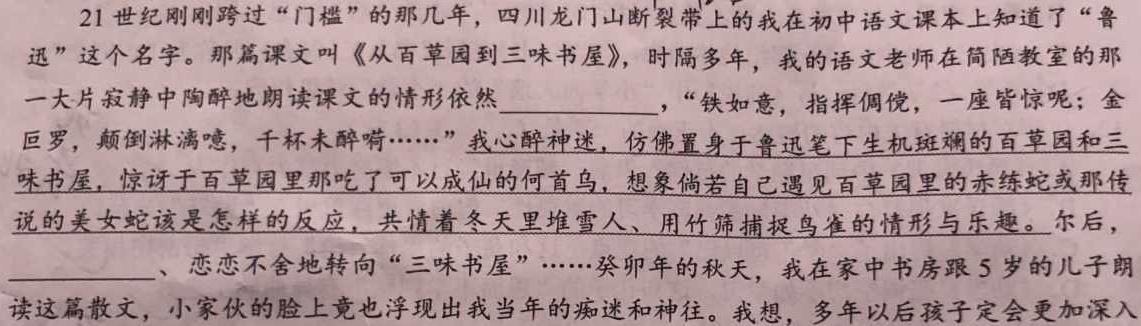 21 世纪刚刚跨过“门槛”的那几年，四川龙门山断裂带上的我在初中语文课本上知道了“鲁
迅”这个名字。那篇课文叫《从百草园到三味书屋》，时隔多年，我的语文老师在简陋教室的那
一大片寂静中陶醉地朗读课文的情形依然____________，“铁如意，指挥倜傥，一座皆惊呢；金
叵罗，颠倒淋漓噫，千杯未醉嗬……”我心醉神迷，仿佛置身于鲁迅笔下生机斑斓的百草园和三
味书屋，惊讶于百草园里那吃了可以成仙的何首乌，想象倘若自己遇见百草园里的赤练蛇或那传
说的美女蛇该是怎样的反应，共情着冬天里堆雪人、用竹筛捕捉鸟雀的情形与乐趣。尔后，
____________、恋恋不舍地转向“三味书屋”……癸卯年的秋天，我在家中书房跟 5 岁的儿子朗
读这篇散文，小家伙的脸上竟也浮现出我当年的痴迷和神往。我想，多年以后孩子定会更加深入